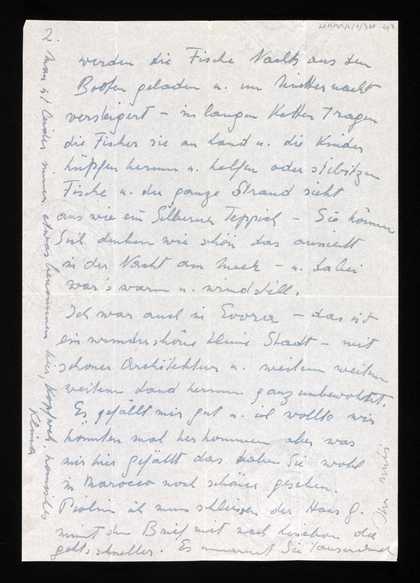 2.
werden die Fische Nachts aus den
Booten geladen u. um Mitternacht
versteigert – in langen Ketten tragen
die Fischer sie an Land u. die Kinder
hüpfen herum u. helfen oder stibitzen
Fische u. der ganze Strand sieht
aus wie ein Silberner Teppich – Sie können
Sich denken wie schön das aussieht
in der Nacht am Meer – u. dabei
war's warm u. windstill.
Ich war auch in Evora – das ist
ein wunderschöne kleine Stadt – mit
schöner Architektur u. weitem weitem
weitem Land herum ganz unbewohntet.
Es gefällt mir gut u. ich wollte wir
könnten mal herkommen aber was
mir hier gefällt das haben Sie wohl
in Marocco noch schöner gesehen.
ich muss schliessen der Hans G.
nimmt den Brief mit nach Lissabon da
gehts schneller. Es umarmt Sie tausendmal
Man ist leider immer etwas benommen hier, komisches
Klima